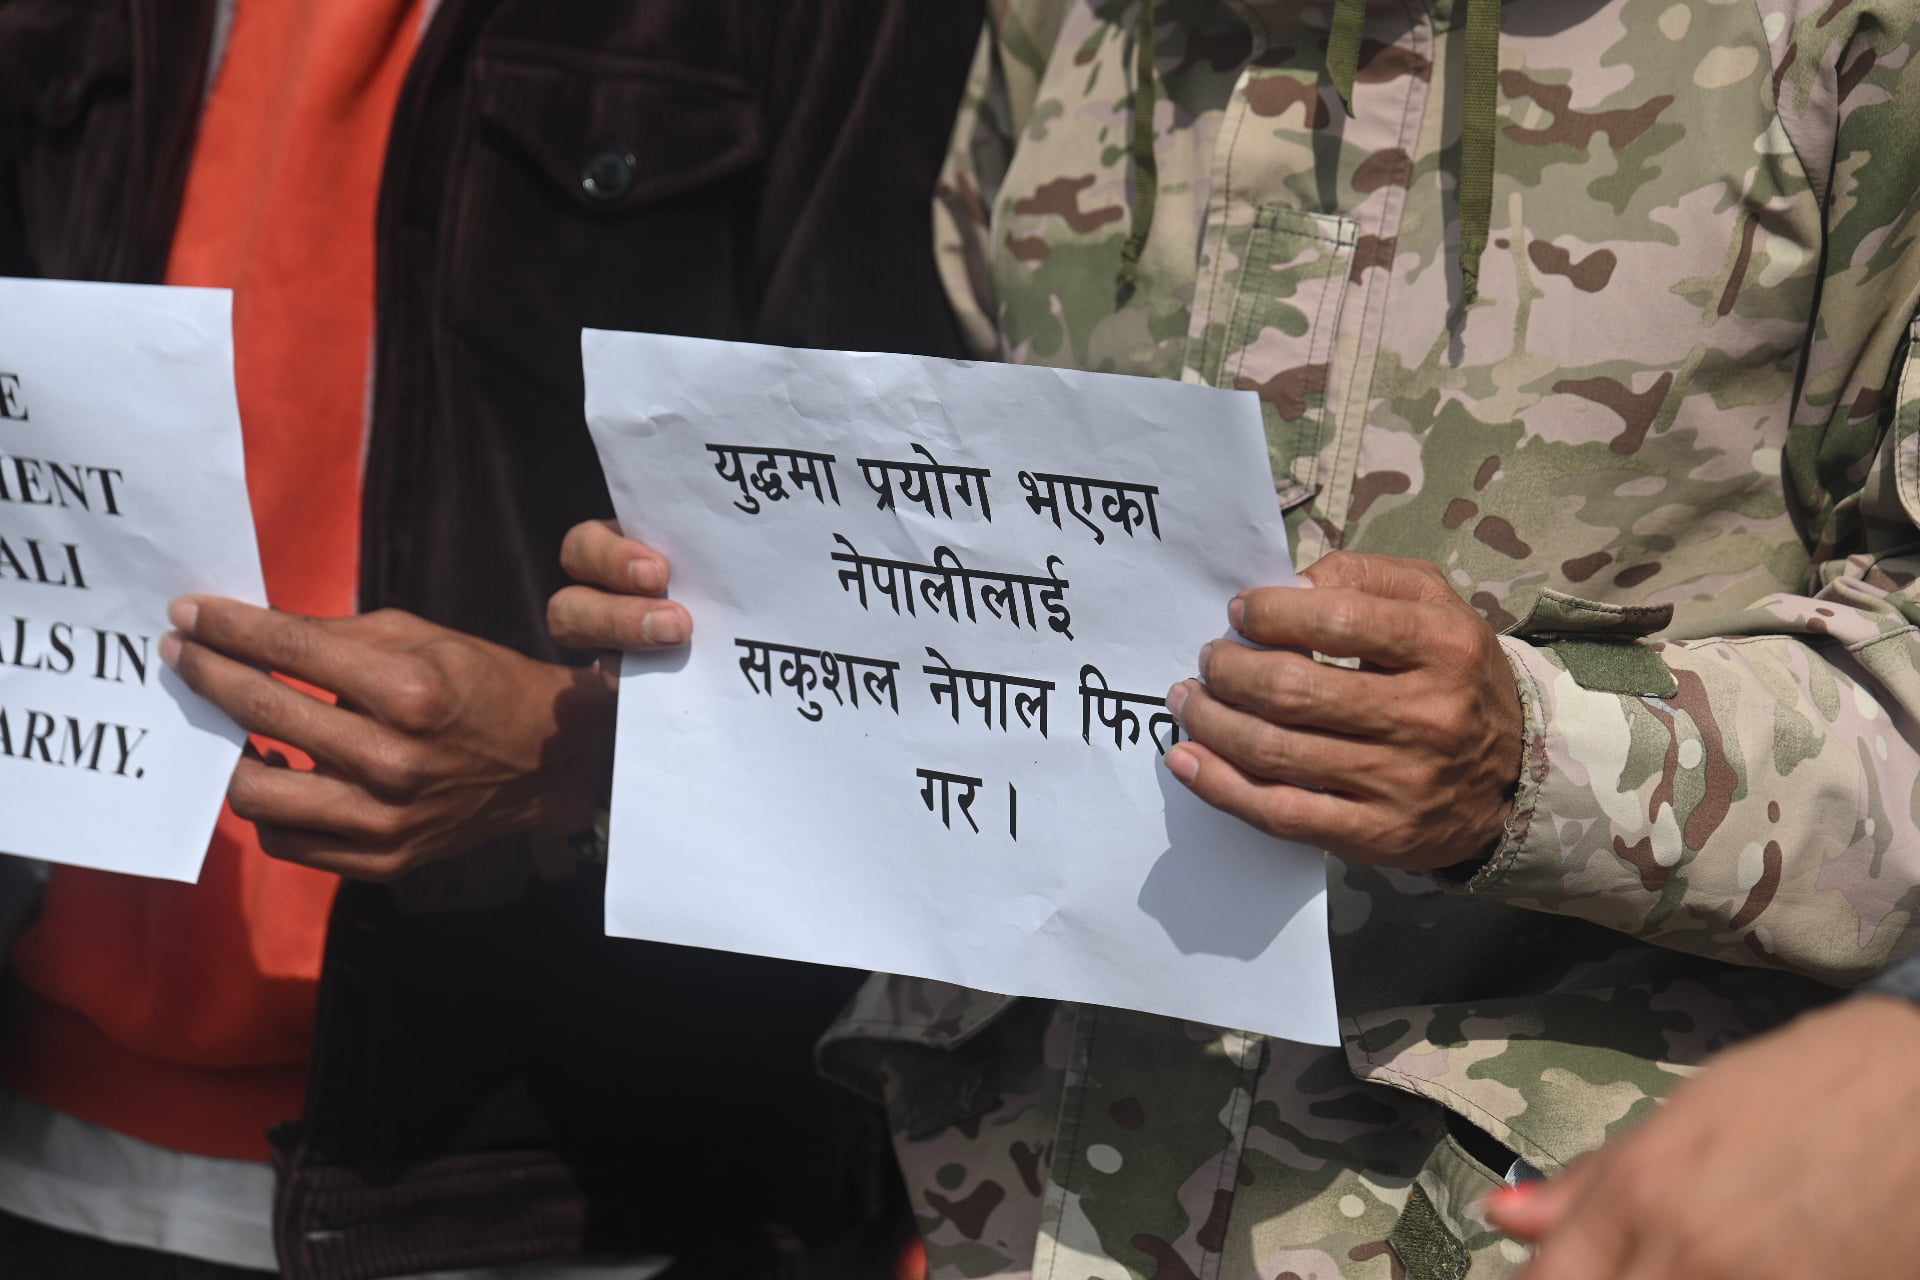 E
MENT
ALI
ALS IN
ARMY.
युद्धमा प्रयोग भएका
नेपालीलाई
सकुशल नेपाल फित
गर ।